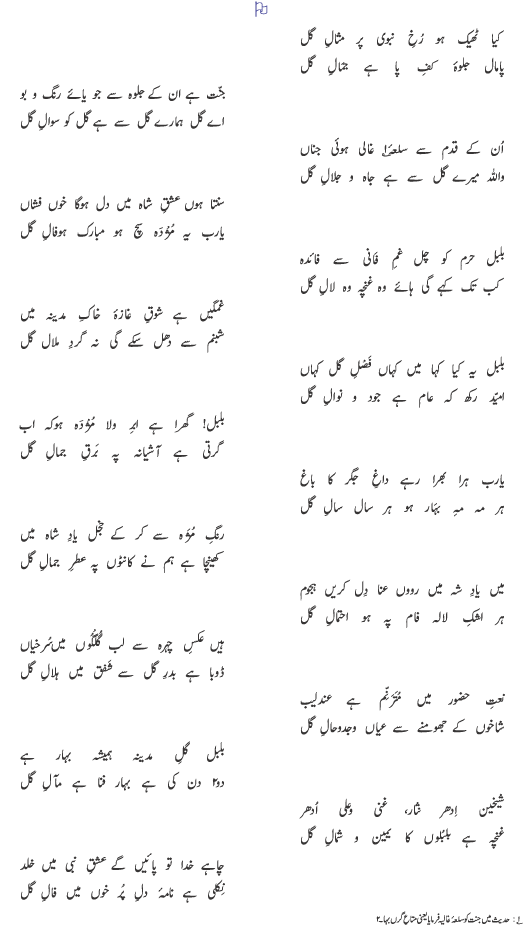 کیا ٹھیک ہو رُخِ نبوی پر مثالِ گل
پامال جلوۂ کفِ پا ہے جمالِ گل
جنّت ہے ان کے جلوہ سے جو یائے رنگ و بو
اے گل ہمارے گل سے ہے گل کو سوالِ گل
اُن کے قدم سے سلعۂ غالی ہوئی جناں
واللہ میرے گل سے ہے جاہ و جلالِ گل
سنتا ہوں عشقِ شاہ میں دل ہوگا خوں فشاں
یارب یہ مُژدہ سچ ہو مبارک ہو فالِ گل
بلبل حرم کو چل غمِ فانی سے فائدہ
کب تک کہے گی ہائے وہ غنچہ وہ لالِ گل
غمگیں ہے شوقِ غازۂ خاکِ مدینہ میں
شبنم سے دھل سکے گی نہ گردِ ملالِ گل
بلبل یہ کیا کہا میں کہاں فَصْلِ گل کہاں
امیّد رکھ کہ عام ہے جود و نوالِ گل
بلبل! گھرا ہے ابرِ ولا مُژدہ ہو کہ اب
گرتی ہے آشیانہ پہ بَرقِ جمالِ گل
یارب ہرا بھرا رہے داغِ جگر کا باغ
ہر مہ مہِ بہار ہو ہر سال سالِ گل
رنگِ مُژہ سے کر کے خجل یادِ شاہ میں
کھینچا ہے ہم نے کانٹوں پہ عطرِ جمالِ گل
میں یادِ شہ میں رووں عنا دِل کریں ہجوم
ہر اشکِ لالہ فام پہ ہو احتمالِ گل
ہیں عکسِ چہرہ سے لبِ گُلگُوں میں سُرخیاں
ڈوبا ہے بدرِ گل سے شَفَق میں ہلالِ گل
نعتِ حضور میں مُتَرَنِّم ہے عندلیب
شاخوں کے جھومنے سے عیاں وجد و حالِ گل
بلبل گلِ مدینہ ہمیشہ بہار ہے
دو۲ دن کی ہے بہار فنا ہے مآلِ گل
شیخین اِدھر نثار، غنی و علی اُدھر
غنچہ ہے بلبلوں کا یمین و شمالِ گل
چاہے خدا تو پائیں گے عشقِ نبی میں خلد
نکلی ہے نامۂ دلِ پُر خوں میں فالِ گل
۱ : حدیث میں جنت کو سلعۂ غالیہ فرمایا یعنی متاع گراں بہا۔۱۲